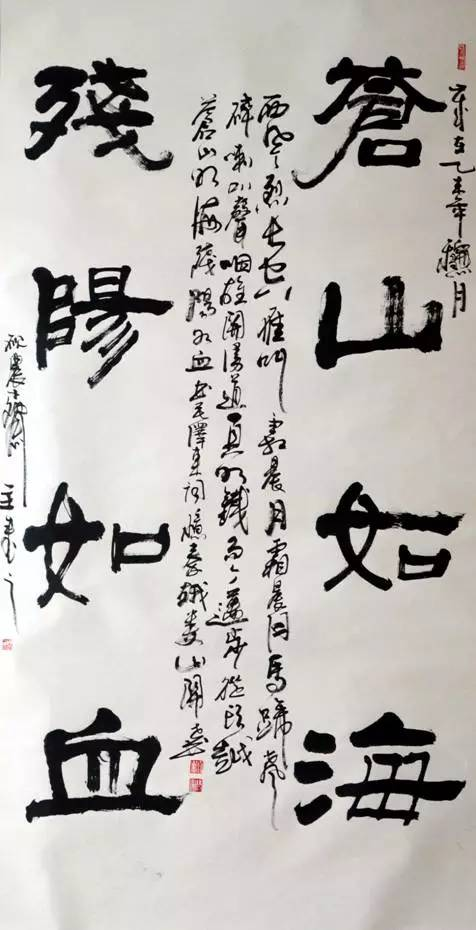 歲在乙未年月
蒼山如海
西風烈長空雁叫霜晨月霜晨月馬蹄聲
碎喇叭聲咽雄關漫道真如鐵而今邁步從頭越
蒼山如海殘陽如血書毛澤東詞憶秦娥婁山關
殘陽如血